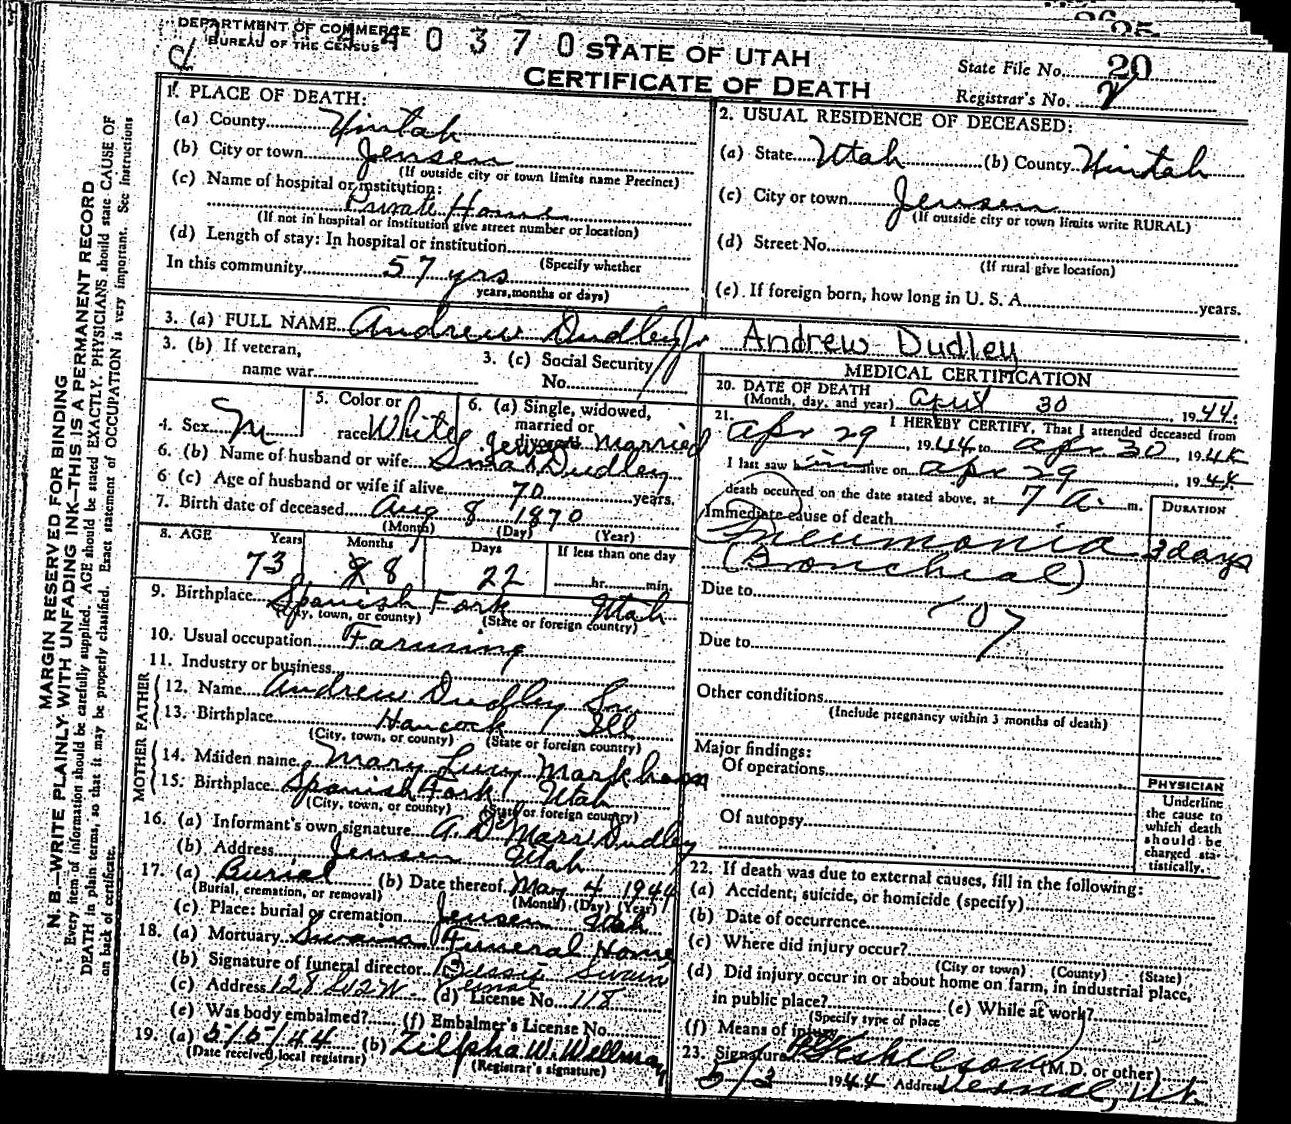 DEPARTMENT OF COMMERCE
BUREAU OF THE CENSUS
STATE OF UTAH
CERTIFICATE OF DEATH
State File No. 20
Registrar's No. 2
1. PLACE OF DEATH:
(a) County Uintah
(b) City or town Jensen
(If outside city or town limits name Precinct)
(c) Name of hospital or institution:
Private Home
(If not in hospital or institution give street number or location)
(d) Length of stay: In hospital or institution
(Specify whether
In this community 57 yrs
years, months or days)
2. USUAL RESIDENCE OF DECEASED:
(a) State Utah (b) County Uintah
(c) City or town Jensen
(If outside city or town limits write RURAL)
(d) Street No.
(If rural give location)
(e) If foreign born, how long in U. S. A. years.
3. (a) FULL NAME Andrew Dudley Jr Andrew Dudley
3. (b) If veteran,
name war
3. (c) Social Security
No.
4. Sex M
5. Color or
race White
6. (a) Single, widowed,
married or
divorced Married
6. (b) Name of husband or wife Dudley
6 (c) Age of husband or wife if alive 70 years.
7. Birth date of deceased Aug 8 1870
(Month) (Day) (Year)
8. AGE Years Months Days If less than one day
73 8 22 hr. min.
9. Birthplace Spanish Fork Utah
(City, town, or county) (State or foreign country)
10. Usual occupation Farming
11. Industry or business
FATHER
12. Name Andrew Dudley Sr.
13. Birthplace Hancock Ill
(City, town, or county) (State or foreign country)
MOTHER
14. Maiden name Mary Lucy Markham
15. Birthplace Spanish Fork Utah
(City, town, or county) (State or foreign country)
16. (a) Informant's own signature A. DeMarr Dudley
(b) Address Jensen Utah
17. (a) Burial (b) Date thereof May 4 1944
(Burial, cremation, or removal) (Month) (Day) (Year)
(c) Place: burial or cremation Jensen Utah
18. (a) Mortuary Swains Funeral Home
(b) Signature of funeral director Bessie Swain
(c) Address 128 So 2 W. Vernal (d) License No. 118
(e) Was body embalmed? (f) Embalmer's License No.
19. (a) 5/5/44 (b) Zilpha W. Wellman
(Date received local registrar) (Registrar's signature)
MEDICAL CERTIFICATION
20. DATE OF DEATH
(Month, day, and year) April 30 1944.
21. I HEREBY CERTIFY, That I attended deceased from
Apr 29, 1944 to Apr 30, 1944
I last saw him alive on Apr 29, 1944
death occurred on the date stated above, at 7 A. m.
DURATION
Immediate cause of death
Pneumonia 3 days
(Broncheal)
Due to
107
Due to
Other conditions
(Include pregnancy within 3 months of death)
Major findings:
Of operations
Of autopsy
PHYSICIAN
Underline
the cause to
which death
should be
charged sta-
tistically.
22. If death was due to external causes, fill in the following:
(a) Accident, suicide, or homicide (specify)
(b) Date of occurrence
(c) Where did injury occur?
(City or town) (County) (State)
(d) Did injury occur in or about home on farm, in industrial place,
in public place? (e) While at work?
(Specify type of place
(f) Means of injury
23. Signature (M.D. or other)
5/3 1944 Address Vernal, Ut.
MARGIN RESERVED FOR BINDING
N. B.—WRITE PLAINLY WITH UNFADING INK—THIS IS A PERMANENT RECORD
Every item of information should be carefully supplied. AGE should be stated EXACTLY. PHYSICIANS should state CAUSE OF
DEATH in plain terms, so that it may be properly classified. Exact statement of OCCUPATION is very important. See instructions
on back of certificate.